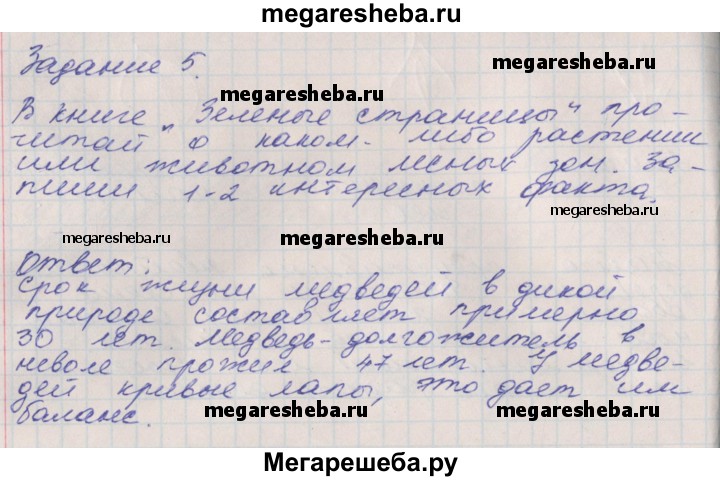 megaresheba.ru
Задание 5.
megaresheba.ru
megaresheba.ru
В книге „Зеленые страницы" про-
читай о каком-либо растении
или животном лесных зон. За-
пиши 1-2 интересных факта.
megaresheba.ru
megaresheba.ru
megaresheba.ru
Ответ:
Срок жизни медведей в дикой
природе составляет примерно
30 лет. Медведь-долгожитель в
неволе прожил 47 лет. У медве-
дей кривые лапы, это дает им
баланс.
megaresheba.ru
megaresheba.ru
Мегарешеба.ру